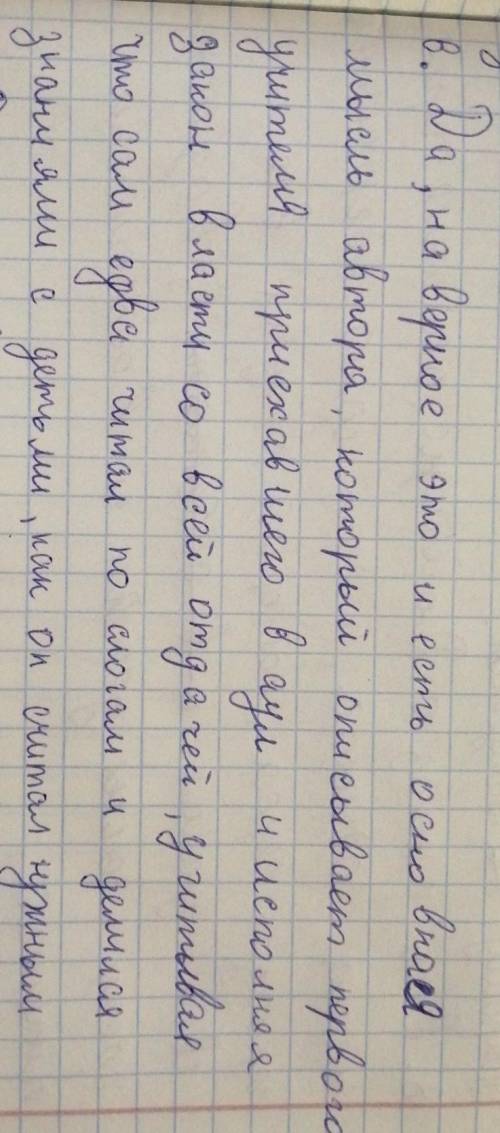 в. Да, на верное это и есть основная
мысль автора, который описывает первого
учителя приехавшего в аул и исполняя
закон власти со всей отдачей, учитывая
что сам едва читал по слогам и делился
знаниями с детьми, как он считал нужным